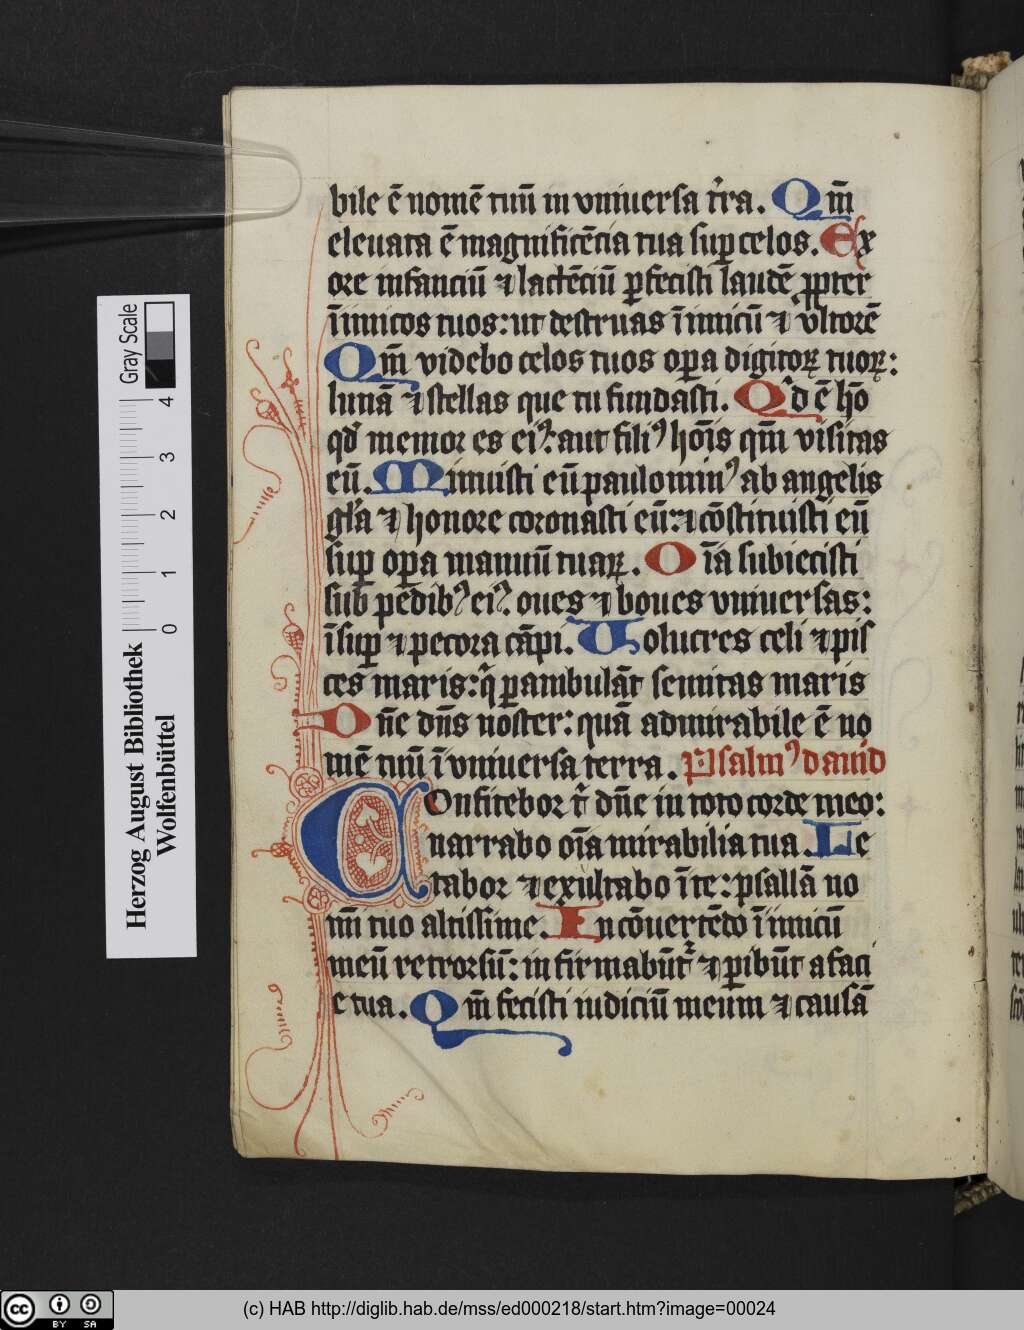 bile ē nomē tuū in vniuersa t̄ra. Qm̄
eleuata ē magnificēcia tua sup celos. Ex
ore infanciū ⁊ lactēciū ꝑfecisti laudē ꝓpter
īimicos tuos: ut destruas īimicū ⁊ vltorē
Qm̄ videbo celos tuos oꝑa digitoꝝ tuoꝝ:
lunā ⁊ stellas que tu fundasti. Qd ē hō
qd memor es eiꝰ: aut filiꝰ hoīs qm̄ visitas
eū. Minuisti eū paulominꝰ ab angelis
gl̄a ⁊ honore coronasti eū: ⁊ cōstituisti eū
suꝑ oꝑa manuū tuaꝝ. Oīa subiecisti
sub pedibꝰ eiꝰ. oues ⁊ boues vniuersas:
īsuꝑ ⁊ pecora cāpi. Volucres celi ⁊ pis
ces maris: q̄ ꝑambulāt semitas maris
Dn̄e dn̄s noster: quā admirabile ē no
mē tuū ī vniuersa terra. Psalmꝰ dauid
Confitebor t̄ dn̄e in toto corde meo:
narrabo oīa mirabilia tua. Le
tabor ⁊ exultabo ī te: psallā no
mī tuo altissime. In cōuertēdo īimicū
meū retrorsū: infirmabūt̄ ⁊ ꝑibūt a faci
e tua. Qm̄ fecisti iudiciū meum ⁊ causā
Gray Scale
0 1 2 3 4
Herzog August Bibliothek
Wolfenbüttel
cc BY SA
(c) HAB http://diglib.hab.de/mss/ed000218/start.htm?image=00024